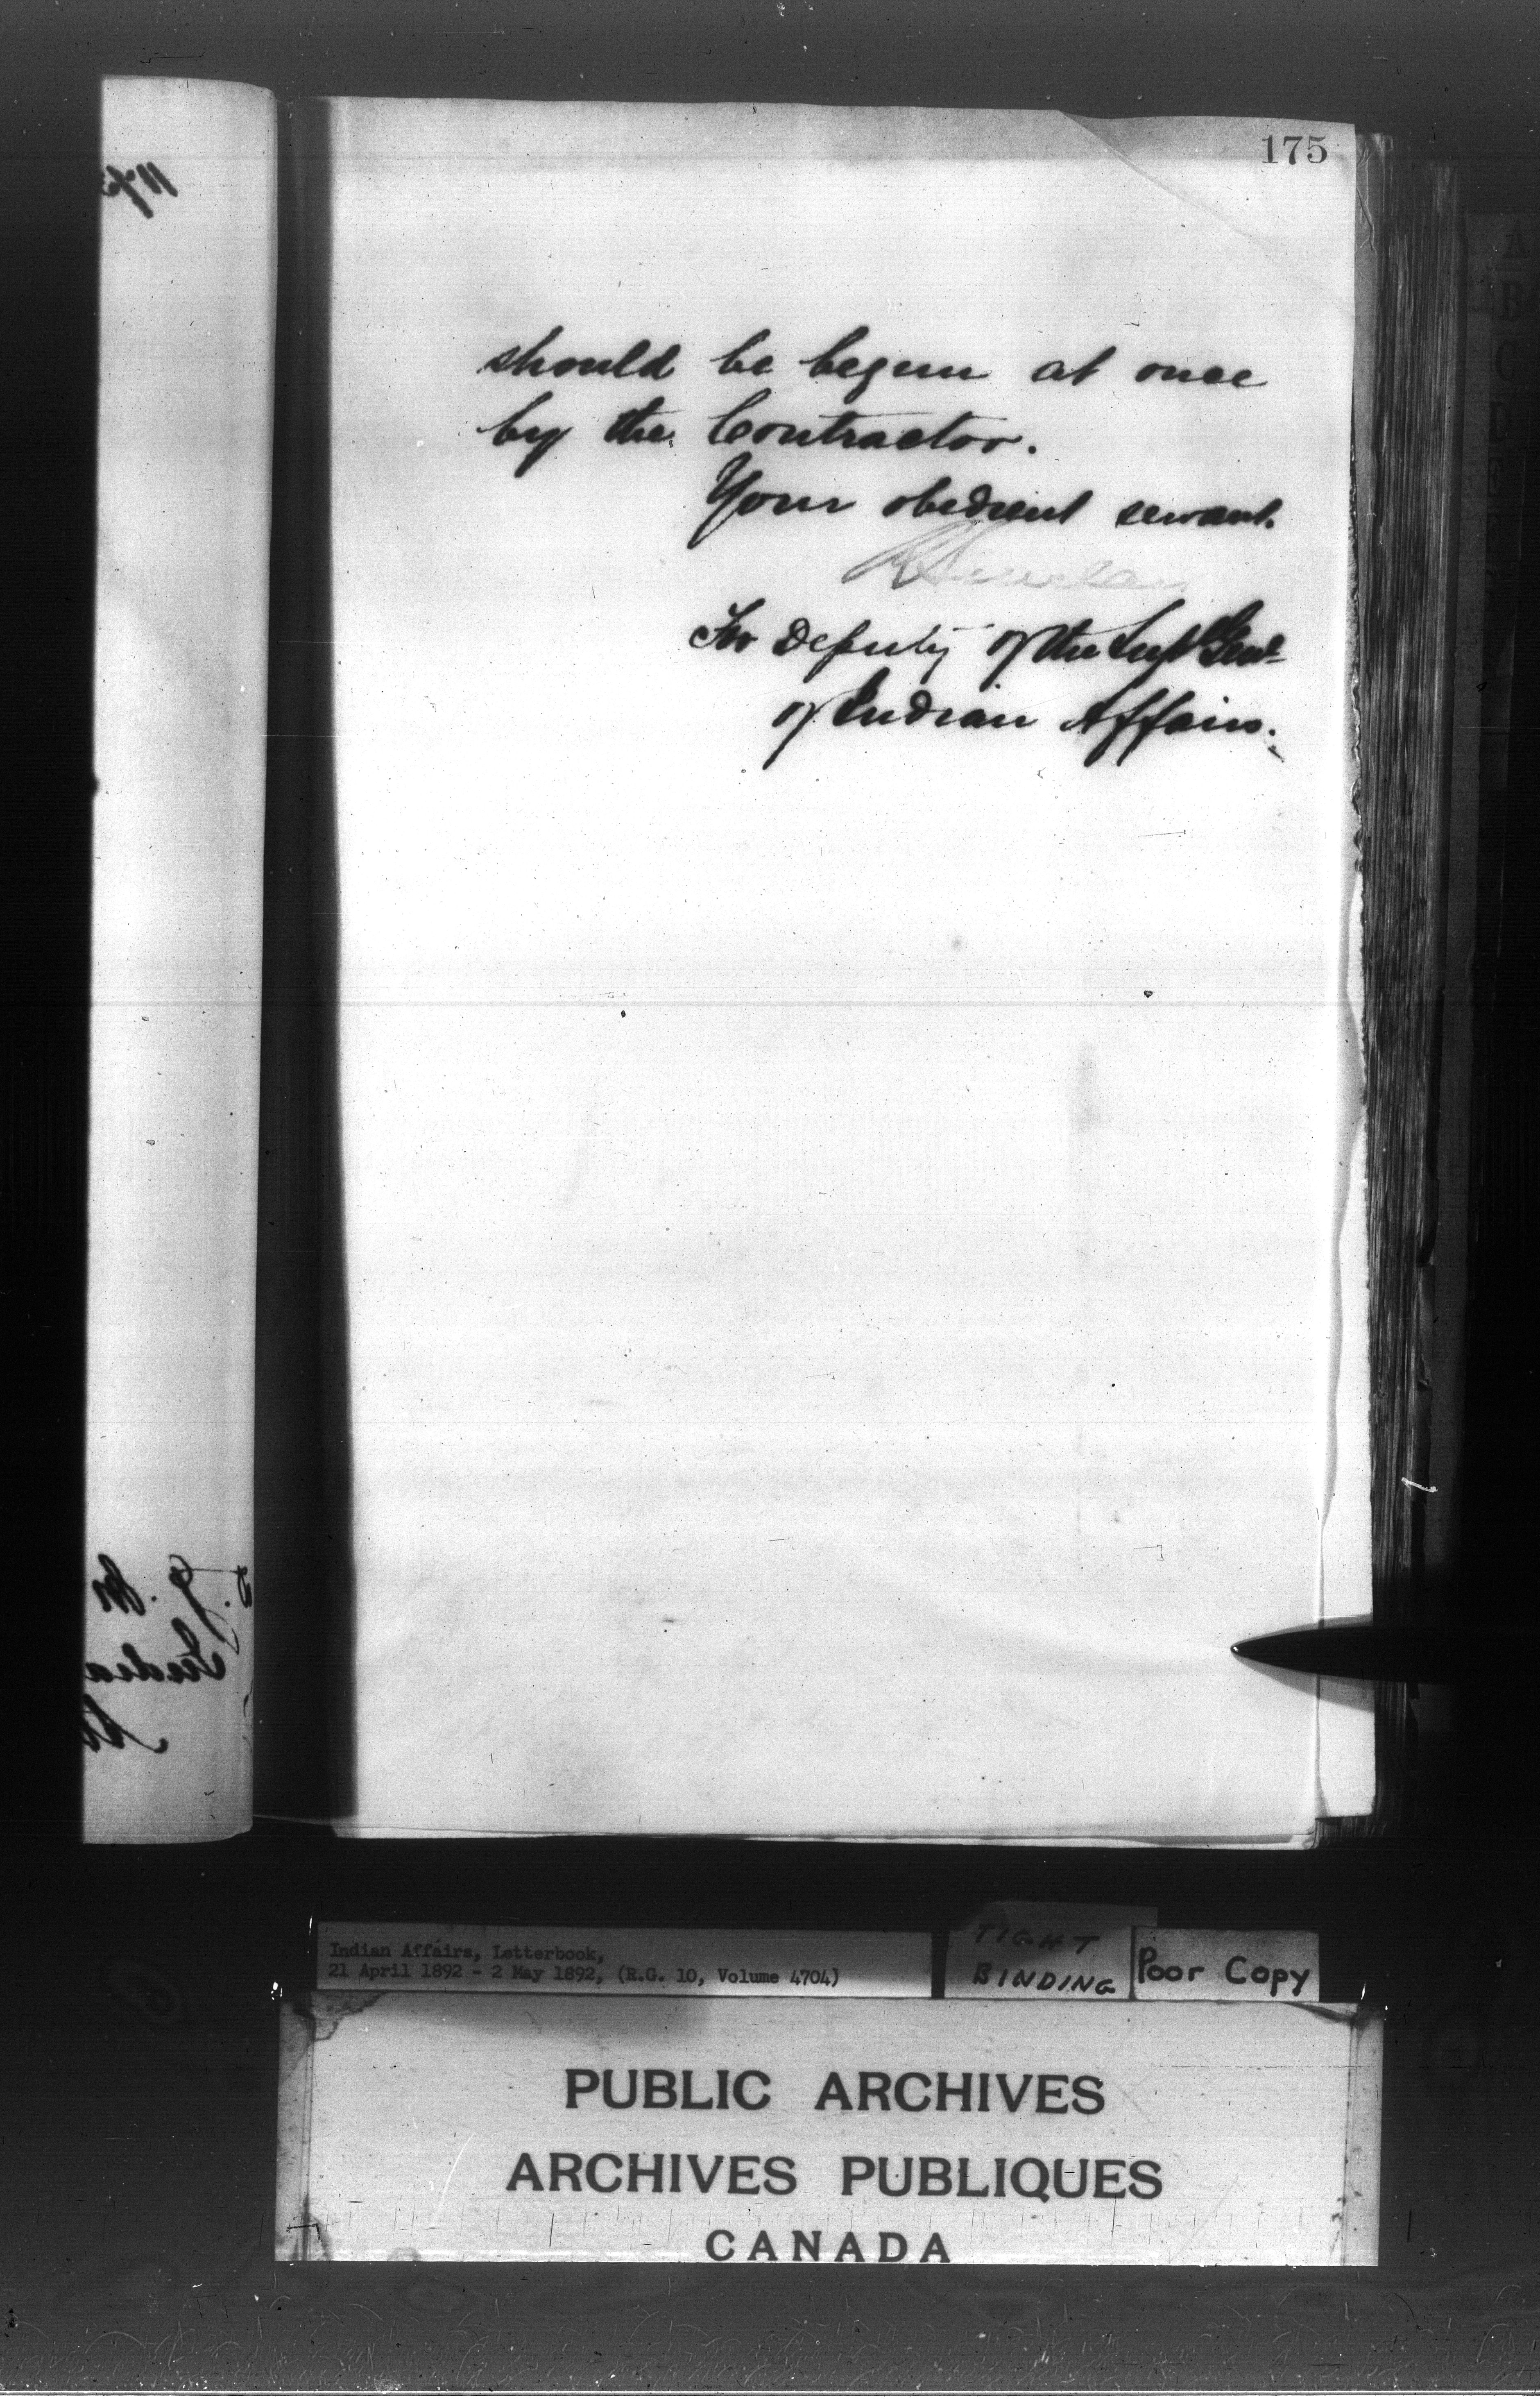 175
should be begun at once
by the Contractor.
Your obedient servant.
R Sinclair
For Deputy of the Supt Genl
of Indian Affairs.
Indian Affairs, Letterbook,
21 April 1892 - 2 May 1892, (R.G. 10, Volume 4704)
TIGHT
BINDING
Poor Copy
PUBLIC ARCHIVES
ARCHIVES PUBLIQUES
CANADA